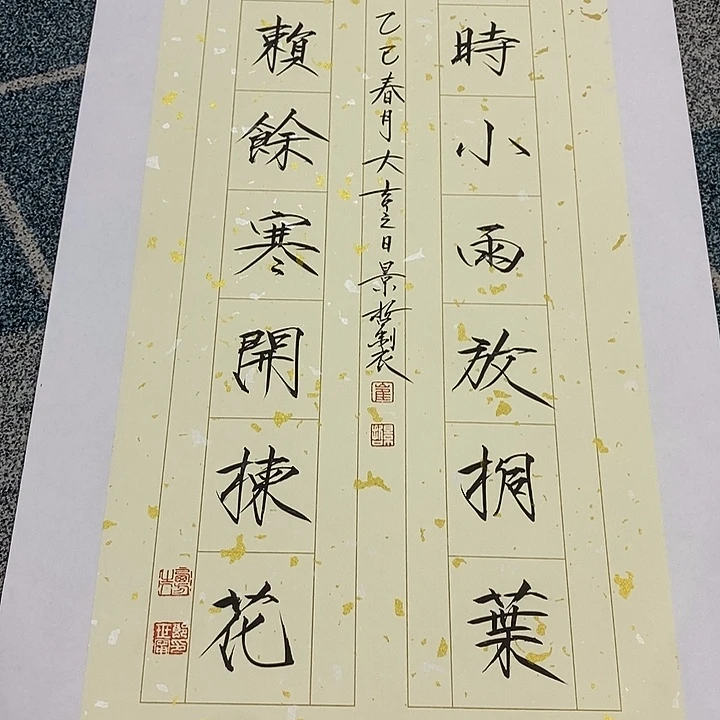 時小雨放桐葉
乙巳春月大吉之日景製
賴餘寒開楝花